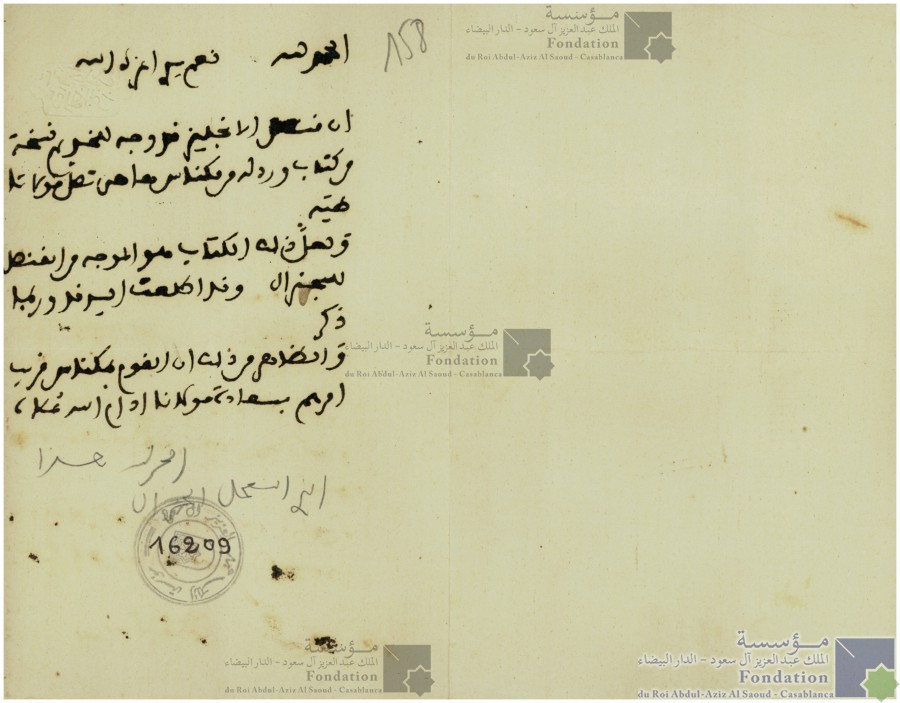 الحمد لله نعم سيدي اعزك الله
158
ان قنصل الانجليز قد وجه للخديم نسخة
من كتاب ورد له من مكناس ها هي تصل مولانا
طيه
ولعل ذلك الكتاب هو الموجه من القنصل
للجنرال وقد اطلعت
ذكر
والظاهر من ذلك ان القوم بمكناس قرب
امرهم بسعادة مولانا ادام الله
الحمد لله هذا
16209
مؤسسة
الملك عبد العزيز آل سعود - الدار البيضاء
Fondation
du Roi Abdul-Aziz Al Saoud - Casablanca
مؤسسة
الملك عبد العزيز آل سعود - الدار البيضاء
Fondation
du Roi Abdul-Aziz Al Saoud - Casablanca
مؤسسة
الملك عبد العزيز آل سعود - الدار البيضاء
Fondation
du Roi Abdul-Aziz Al Saoud - Casablanca
مؤسسة
الملك عبد العزيز آل سعود - الدار البيضاء
Fondation
du Roi Abdul-Aziz Al Saoud - Casablanca